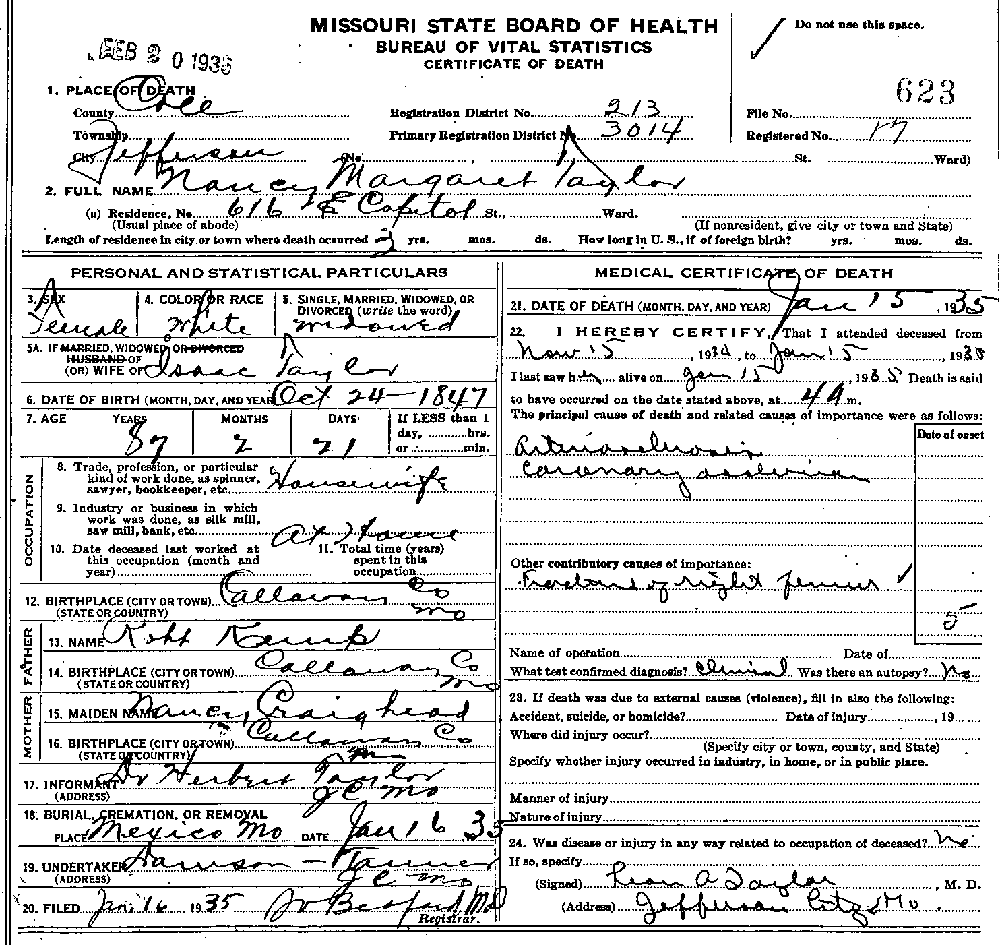 MISSOURI STATE BOARD OF HEALTH
BUREAU OF VITAL STATISTICS
CERTIFICATE OF DEATH
Do not use this space.
FEB 20 1935
1. PLACE OF DEATH
County Cole
Registration District No. 213
File No. 623
Township
Primary Registration District No. 3014
Registered No. 17
City Jefferson (No. St. Ward)
2. FULL NAME Nancy Margaret Taylor
(a) Residence, No. 616 E Capitol St., Ward.
(Usual place of abode) (If nonresident, give city or town and State)
Length of residence in city or town where death occurred yrs. mos. ds. How long in U. S., if of foreign birth? yrs. mos. ds.
PERSONAL AND STATISTICAL PARTICULARS
3. SEX Female
4. COLOR OR RACE White
5. SINGLE, MARRIED, WIDOWED, OR DIVORCED (write the word) Widowed
5A. IF MARRIED, WIDOWED, OR DIVORCED
HUSBAND OF
(OR) WIFE OF Isaac Taylor
6. DATE OF BIRTH (MONTH, DAY, AND YEAR) Oct 24 - 1847
7. AGE YEARS 87 MONTHS 2 DAYS 21 If LESS than 1 day, hrs. or min.
OCCUPATION
8. Trade, profession, or particular kind of work done, as spinner, sawyer, bookkeeper, etc. Housewife
9. Industry or business in which work was done, as silk mill, saw mill, bank, etc. At Home
10. Date deceased last worked at this occupation (month and year)
11. Total time (years) spent in this occupation
12. BIRTHPLACE (CITY OR TOWN) Callaway Co
(STATE OR COUNTRY) Mo
FATHER
13. NAME Robt Kemp
14. BIRTHPLACE (CITY OR TOWN) Callaway Co
(STATE OR COUNTRY) Mo
MOTHER
15. MAIDEN NAME Nancy Craighead
16. BIRTHPLACE (CITY OR TOWN) Callaway Co
(STATE OR COUNTRY) Mo
17. INFORMANT Dr Herbert Taylor
(ADDRESS) J C Mo
18. BURIAL, CREMATION, OR REMOVAL
PLACE Mexico Mo DATE Jan 16 35
19. UNDERTAKER Dawson - Tanner
(ADDRESS) J C Mo
20. FILED Jan 16 1935 Bedford MD
Registrar.
MEDICAL CERTIFICATE OF DEATH
21. DATE OF DEATH (MONTH, DAY, AND YEAR) Jan 15, 1935
22. I HEREBY CERTIFY, That I attended deceased from
Nov 15, 1934, to Jan 15, 1935
I last saw her alive on Jan 15, 1935 Death is said
to have occurred on the date stated above, at 4 A m.
The principal cause of death and related causes of importance were as follows:
Date of onset
Arteriosclerosis
Coronary
Other contributory causes of importance:
Fracture of right femur
5
Name of operation Date of
What test confirmed diagnosis? Clinical Was there an autopsy? No
23. If death was due to external causes (violence), fill in also the following:
Accident, suicide, or homicide? Date of injury , 19
Where did injury occur?
(Specify city or town, county, and State)
Specify whether injury occurred in industry, in home, or in public place.
Manner of injury
Nature of injury
24. Was disease or injury in any way related to occupation of deceased? No
If so, specify
(Signed) Leon A Taylor, M. D.
(Address) Jefferson City, Mo.